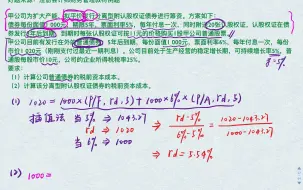 甲公司为扩大产能，拟平价发行分离型附认股权证债券进行筹资，方案如下：
债券每份面值1000元，期限5年，票面利率5%。每年付息一次，同时附送20份认股权证，认股权证在债券
发行5年后到期，到期时每份认股权证可按11元的价格购买1股甲公司普通股票。
甲公司目前有发行在外的普通债券，5年后到期，每份面值1000元，票面利率6%，每年付息一次，每份
市价1020元（刚刚支付过最近一期利息），公司目前处于生产的稳定增长期，可持续增长率5%。普通股
公司的企业所得税税率25%。
要求：
(1) 计算公司普通债券的税前资本成本。
(2) 计算该分离型附认股权证债券的税前资本成本。
g=5%
(1) 1020=1000×(P/F,rd,5)+1000×6%×(P/A,rd,5)
插值法 当 5% → 1043.27
rd → 1020
当 6% → 1000
⇒ rd-5% / 6%-5% = 1020-1043.27 / 1000-1043.27
⇒ rd=5.54%
(2) 1000=